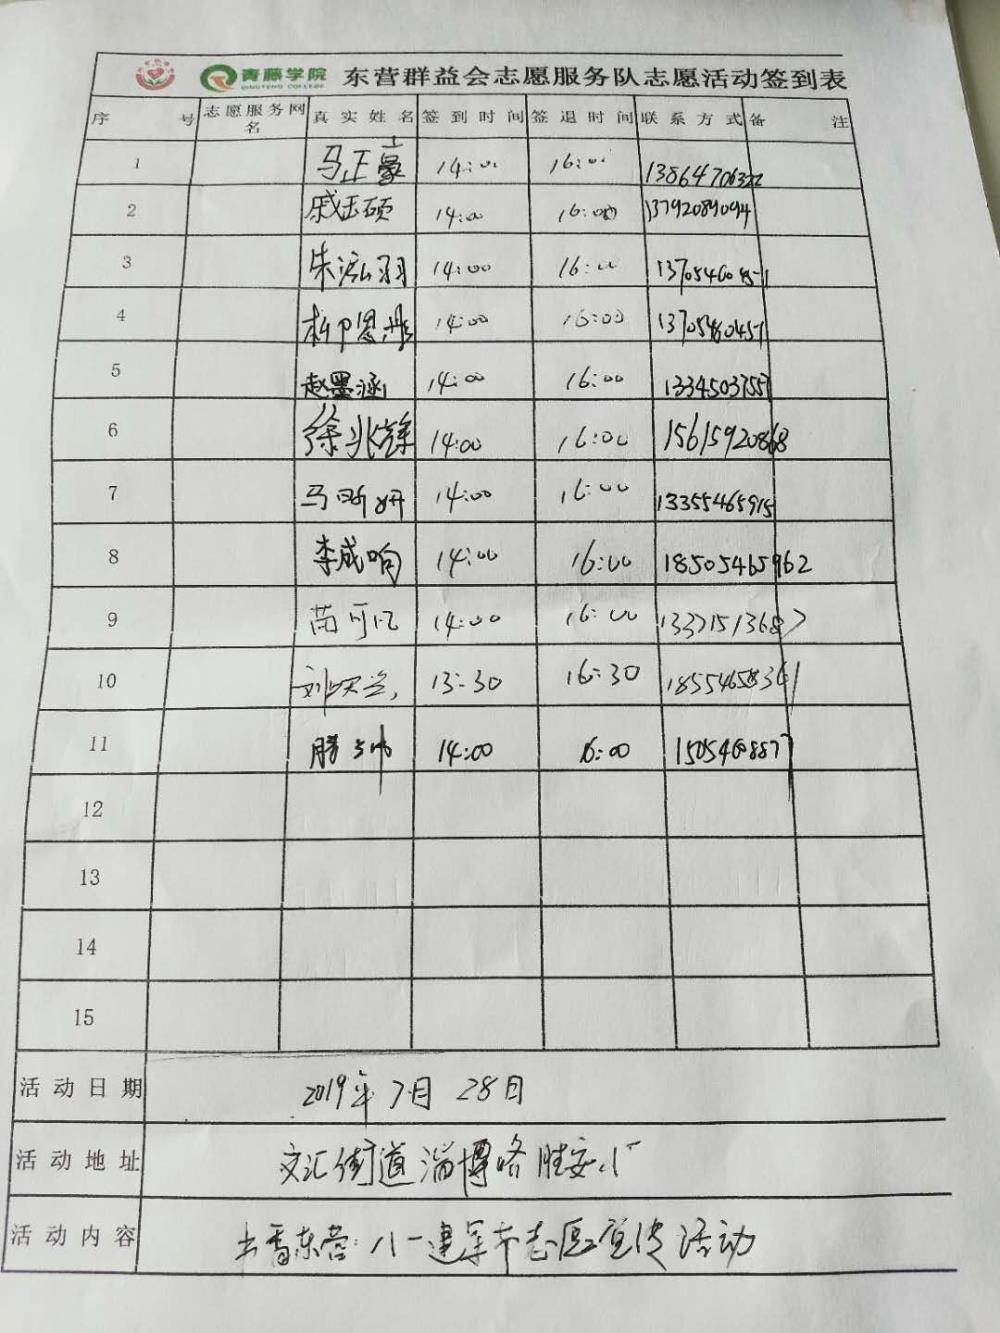 青藤学院 东营群益会志愿服务队志愿活动签到表
QINGTENG COLLEGE
序号 志愿服务网名 真实姓名 签到时间 签退时间 联系方式 备注
1 马正豪 14:00 16:00 13864706322
2 戚玉硕 14:00 16:00 13792089094
3 朱泓羽 14:00 16:00
4 14:00 16:00 13705460451
5 赵墨涵 14:00 16:00
6 徐兆锋 14:00 16:00 15615920868
7 马昕妍 14:00 16:00 13355465915
8 李咸响 14:00 16:00 18505465962
9 苗可凡 14:00 16:00 13371513687
10 13:30 16:30 18554658361
11 14:00 16:00
12
13
14
15
活动日期 2019年7月28日
活动地址 文汇街道淄博路胜安小厂
活动内容 书香东营:八一建军节志愿宣传活动